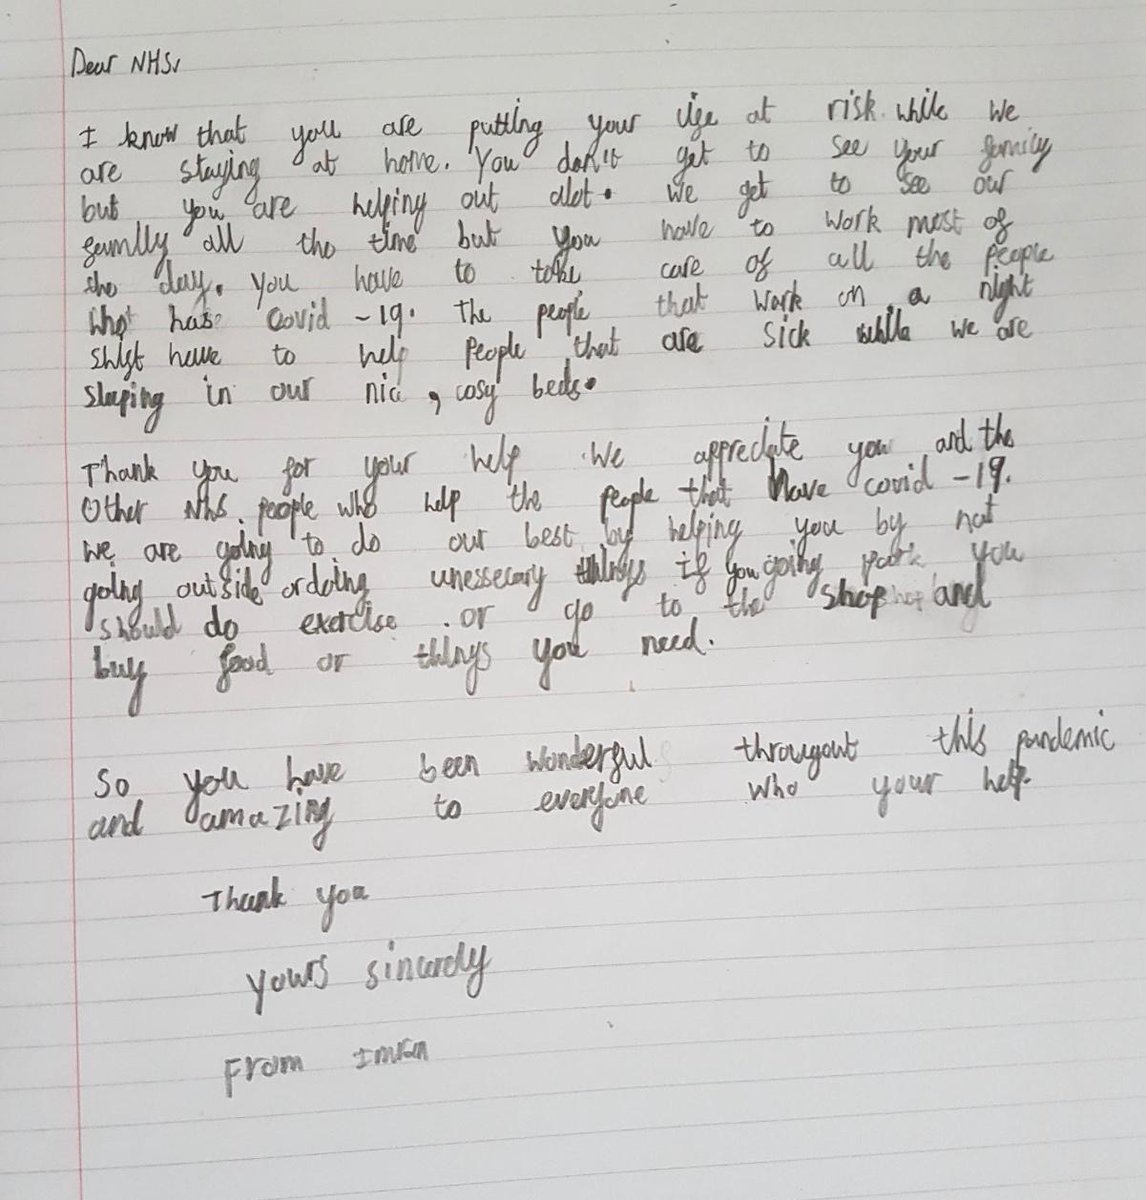 Dear NHS,
I know that you are putting your life at risk while we
are staying at home. You don't get to see your family
but you are helping out alot. We get to see our
family all the time but you have to work most of
the day. you have to take care of all the people
who has covid -19. The people that work on a night
shift have to help people that are sick while we are
sleeping in our nice, cosy beds.
Thank you for your help We appreciate you and the
Other NHS people who help the people that have covid -19.
We are going to do our best by helping you by not
going outside or doing unessecary things if you going park you
should do exercise or go to the shop and
buy food or things you need.
So you have been wonderful througout this pandemic
and amazing to everyone who your help.
Thank you
yours sincerely
From Imran